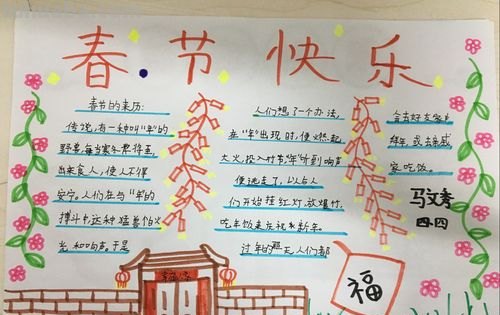 春节快乐
春节的来历:
传说,有一种叫“年”的
野兽,每当寒冬将至,
出来食人,使人不得
安宁。人们在与“年”的
搏斗中,这种猛兽怕火
光和响声。于是
人们想了一个办法,
在“年”出现时,便燃起
大火,投入竹节“年”听到响声
便逃走了,以后人
们开始挂红灯,放爆竹,
吃年饭来庆祝新年。
过年的那一天人们都
会去好友家
拜年,或去亲戚
家吃饭。
马文秀
四四
福